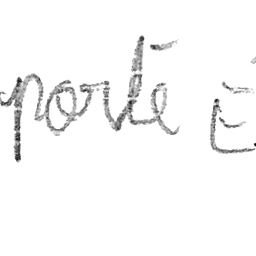 porté É